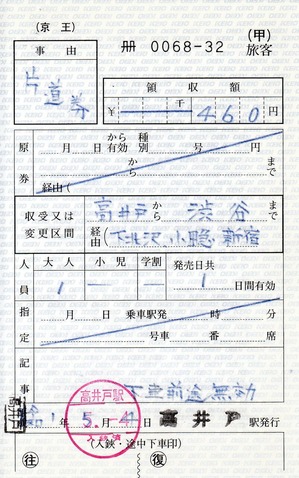 (京 王)
(甲)
冊 0068-32 旅客
事 由
片道券
領 収 額
千
¥ 460円
原券
月 日 から有効 種別 号 円
から まで
経由(
収受又は変更区間
高井戸から 渋谷まで
経由(下北沢 小 新宿
人員
大人 小児 学割 発売日共
1 1日間有効
指定
月 日 乗車駅発 時 分
号車 番 席
記事
下車前途無効
高井戸駅
入鋏済
1年 5月 4日 高井戸 駅発行
(入鋏・途中下車印)
往 復